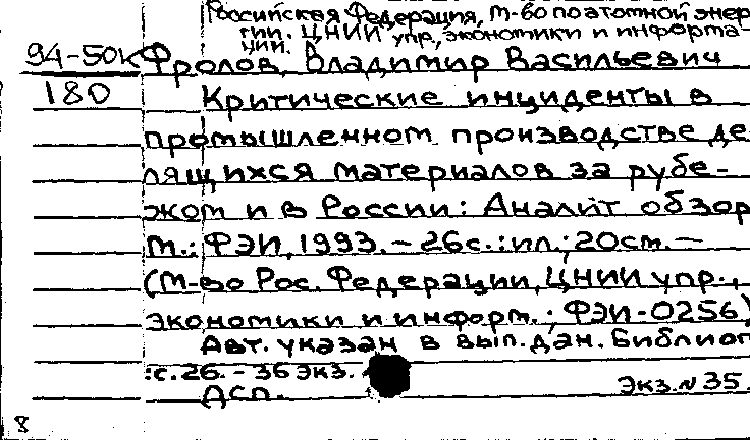 Российская Федерация, М-во по атомной энер
гии. ЦНИИ упр., экономики и информа-
ции.
94-50к Фролов, Владимир Васильевич
180 Критические инциденты в
промышленном производстве де
лящихся материалов за рубе-
жом и в России: Аналит обзор
М.: ФЭИ, 1993. - 26с.: ил.; 20см. -
(М-во Рос. Федерации, ЦНИИ упр.,
экономики и информ.; ФЭИ-0256)
Авт. указан в вып. дан. Библиог
.: с. 26. - 36 экз.
ДСП. Экз. № 35
8